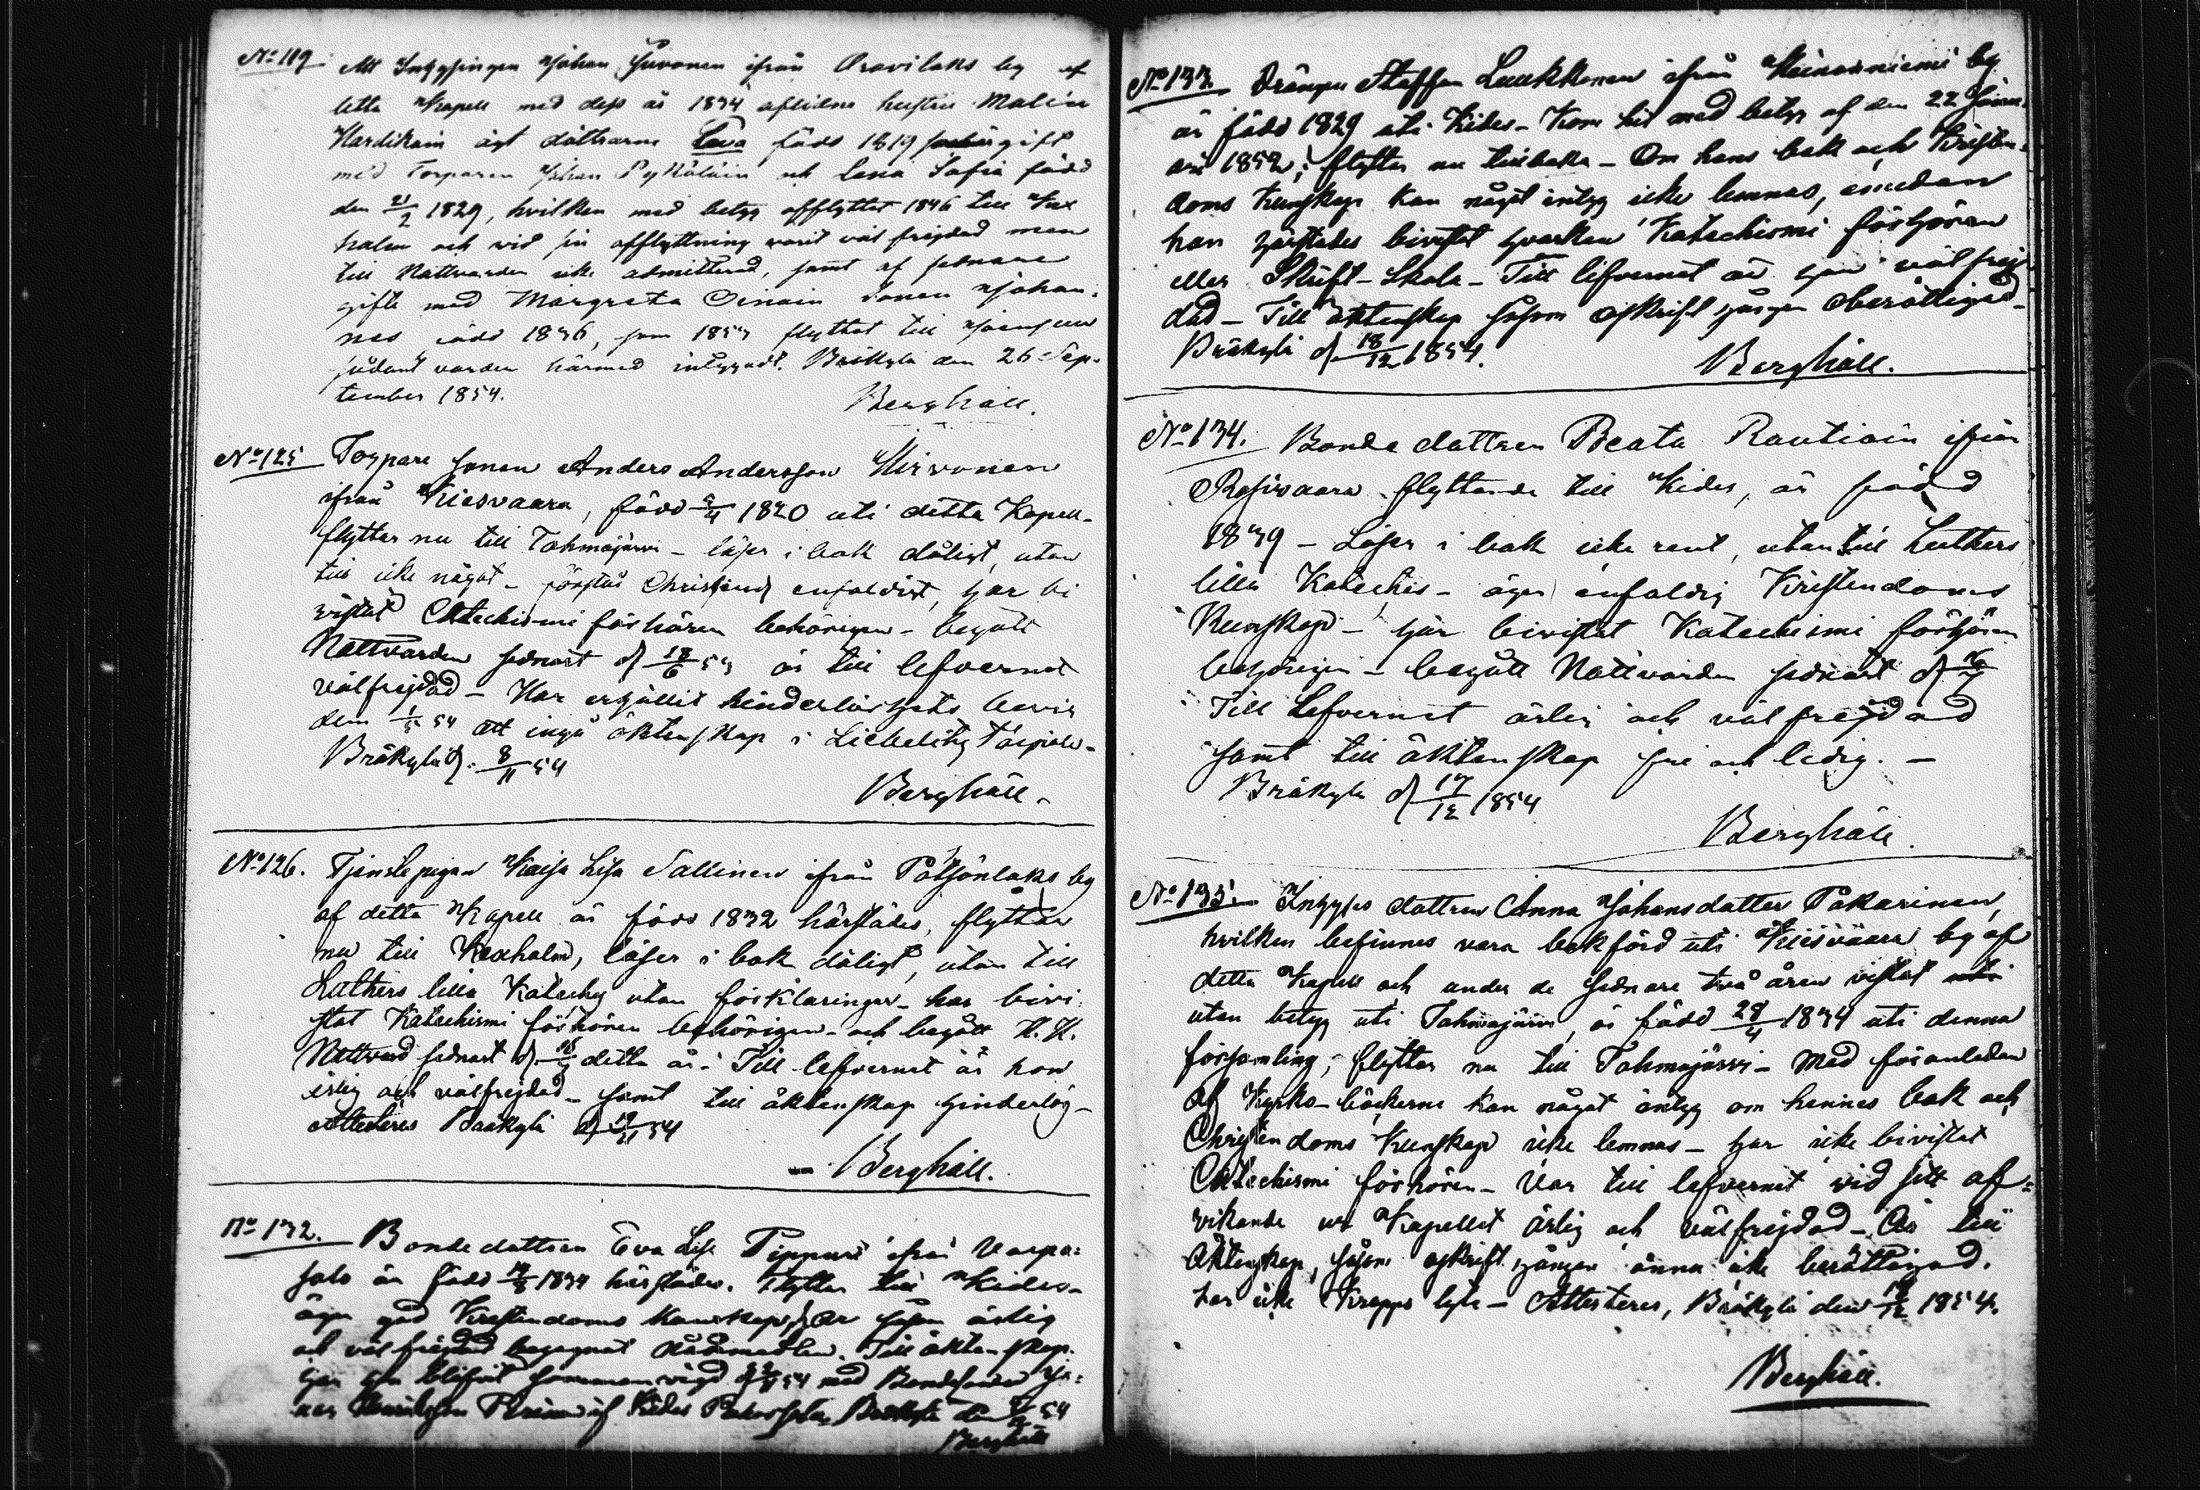 No 119. Att Inhysingen Johan Juvonen ifrån Oravilaks by af
detta Kapell med dess år 1834 aflidna hustru Malin
Hardikain ägt döttrarne Lova född 1819 gift
med Torparen Johan Pykäläin och Lena Sofia född
den 21/2 1829, hvilken med betyg afflyttat 1846 till Kex
holm och vid sin afflyttning varit väl frejdad men
till Nattvarden icke admitterad, samt af sednare
gifte med Margreta Oinain Sonen Johan-
nes född 1836, som 1853 flyttat till Joensuu
sådant varder härmed intygadt. Bräkylä den 26 Sep-
tember 1854.
Berghäll.
No 125 Torpare sonen Anders Andersson Hirvonen
ifrån Kiesvaara, född 1820 uti detta Kapell-
flyttar nu till Tohmajärvi - läser i bok dåligt, utan
till icke något - förstår Christend. enfaldigt, har bi
vistat Catechismi förhören behörigen - begått
Nattvarden sednast d. 18/6 53 är till lefvernet
välfrejdad - Har erhållit hinderlöshets bevis
den 54 att ingå äktenskap i Libelits Taipale-
Bräkylä d. 8/11 54
Berghäll.
No 126. Tjenstepigan Kaisa Lisa Sallinen ifrån Pötsönlaks by
af detta Kapell är född 1832 härstädes, flyttar
nu till Kexholm, läser i bok dåligt, utan till
Luthers lilla Kateches utan förklaringar - har bivi
stat Katechismi förhören behörigen - och begått H. H.
Nattvard sednast d. detta år. Till lefvernet är hon
ärlig och välfrejdad - samt till äktenskap hinderlös -
Attesteras Bräkylä d. 54
- Berghäll.
No 132. Bonde dottren Eva Lisa Pippuri ifrån Varpa-
salo är född 1834 härstädes. Flyttar till Kides -
äger god Kristendoms Kunskap, har såsom ärlig
och väl frejdad begagnat nådemedlen. Till äktenskap
har hon blifvit sammanvigd 54 med Bondesonen Jo-
nas af Kides Bräkylä den 54
Berghäll
No 133. Drängen Staffan Luukkonen ifrån Heinoniemi by
är född 1829 uti Kides - Kom hit med betyg af den 22 Janu-
ari 1852; flyttar nu tillbaka - Om hans bok och Kristen-
doms Kunskap kan något intyg icke lemnas, emedan
han härstädes bivistat hvarken Katechismi förhören
eller Skrift-Skola - Till lefvernet är han väl frej-
dad - Till äktenskap såsom oskrift gången oberättigad -
Bräkylä d. 18/12 1854.
Berghäll.
No 134. Bonde dottren Beata Rautiain ifrån
Rasivaara flyttande till Kides, är född
1839 - Läser i bok icke rent, utantill Luthers
lilla Kateches - äger enfaldig Kristendoms
Kunskap - har bivistat Katechismi förhören
behörigen - begått Nattvarden sednast d.
Till Lefvernet ärlig och väl frejdad
samt till äktenskap fri och ledig. -
Bräkylä d. 17/12 1854
Berghäll.
No 135. Inhyses dottren Anna Johansdotter Pakarinen,
hvilken befinnes vara bokförd uti Kiisvaara by af
detta Kapell och under de sednare två åren vistat uti
utan betyg uti Tohmajärvi, är född 28/4 1834 uti denna
församling, flyttar nu till Tohmajärvi - Med föranledan
af Kyrko-böckerne kan något intyg om hennes bok och
Christendoms Kunskap icke lemnas - har icke bivistat
Catechismi förhören - Var till lefvernet vid sitt af-
vikande ur Kapellet ärlig och välfrejdad - Är till
Äktenskap, såsom oskrift gången ännu icke berättigad.
har icke Kropps lyte - Attesteras, Bräkylä den 18/12 1854.
Berghäll.